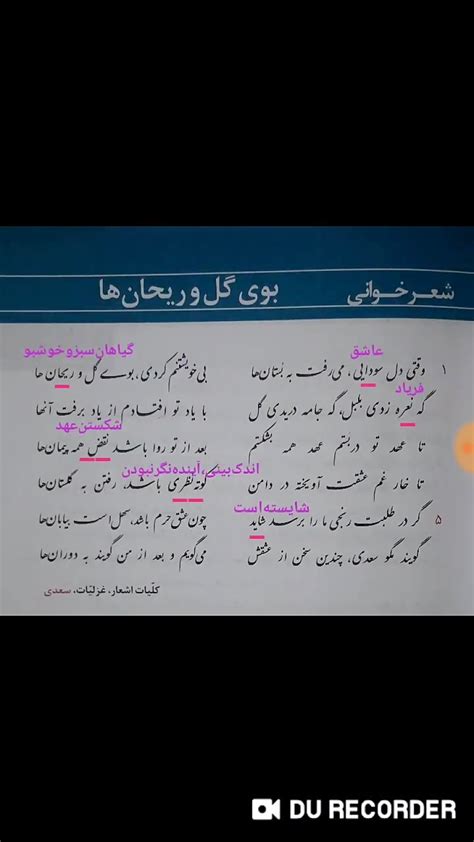 شعرخوانی بوی گل و ریحان‌ها
عاشق گیاهان سبز و خوشبو
۱ وقتی دل سودایی، می‌رفت به بُستان‌ها بی خویشتنم کردی، بوی گل و ریحان ها
فریاد
گه نعره زدی بلبل، گه جامه دریدی گل با یاد تو افتادم از یاد برفت آنها
شکستن عهد
تا عهد تو دربستم عهد همه بشکستم بعد از تو روا باشد نقض همه پیمان‌ها
اندک بینی، آینده نگر نبودن
تا خار غم عشقت آویخته در دامن کوته نظری باشد، رفتن به گلستان‌ها
شایسته است
۵ گر در طلبت رنجی ما را برسد شاید چون عشق حرم باشد، سهل است بیابان‌ها
گویند مگو سعدی، چندین سخن از عشقش می‌گویم و بعد از من گویند به دوران‌ها
کلّیات اشعار، غزلیّات، سعدی
DU RECORDER